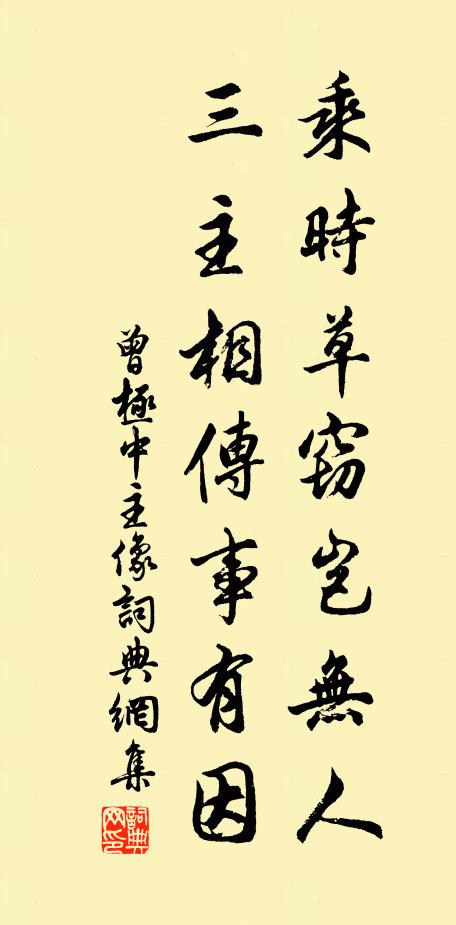 乘時草竊豈無人
三主相傳事有因
曾極中主像詞典網集
詞典網印